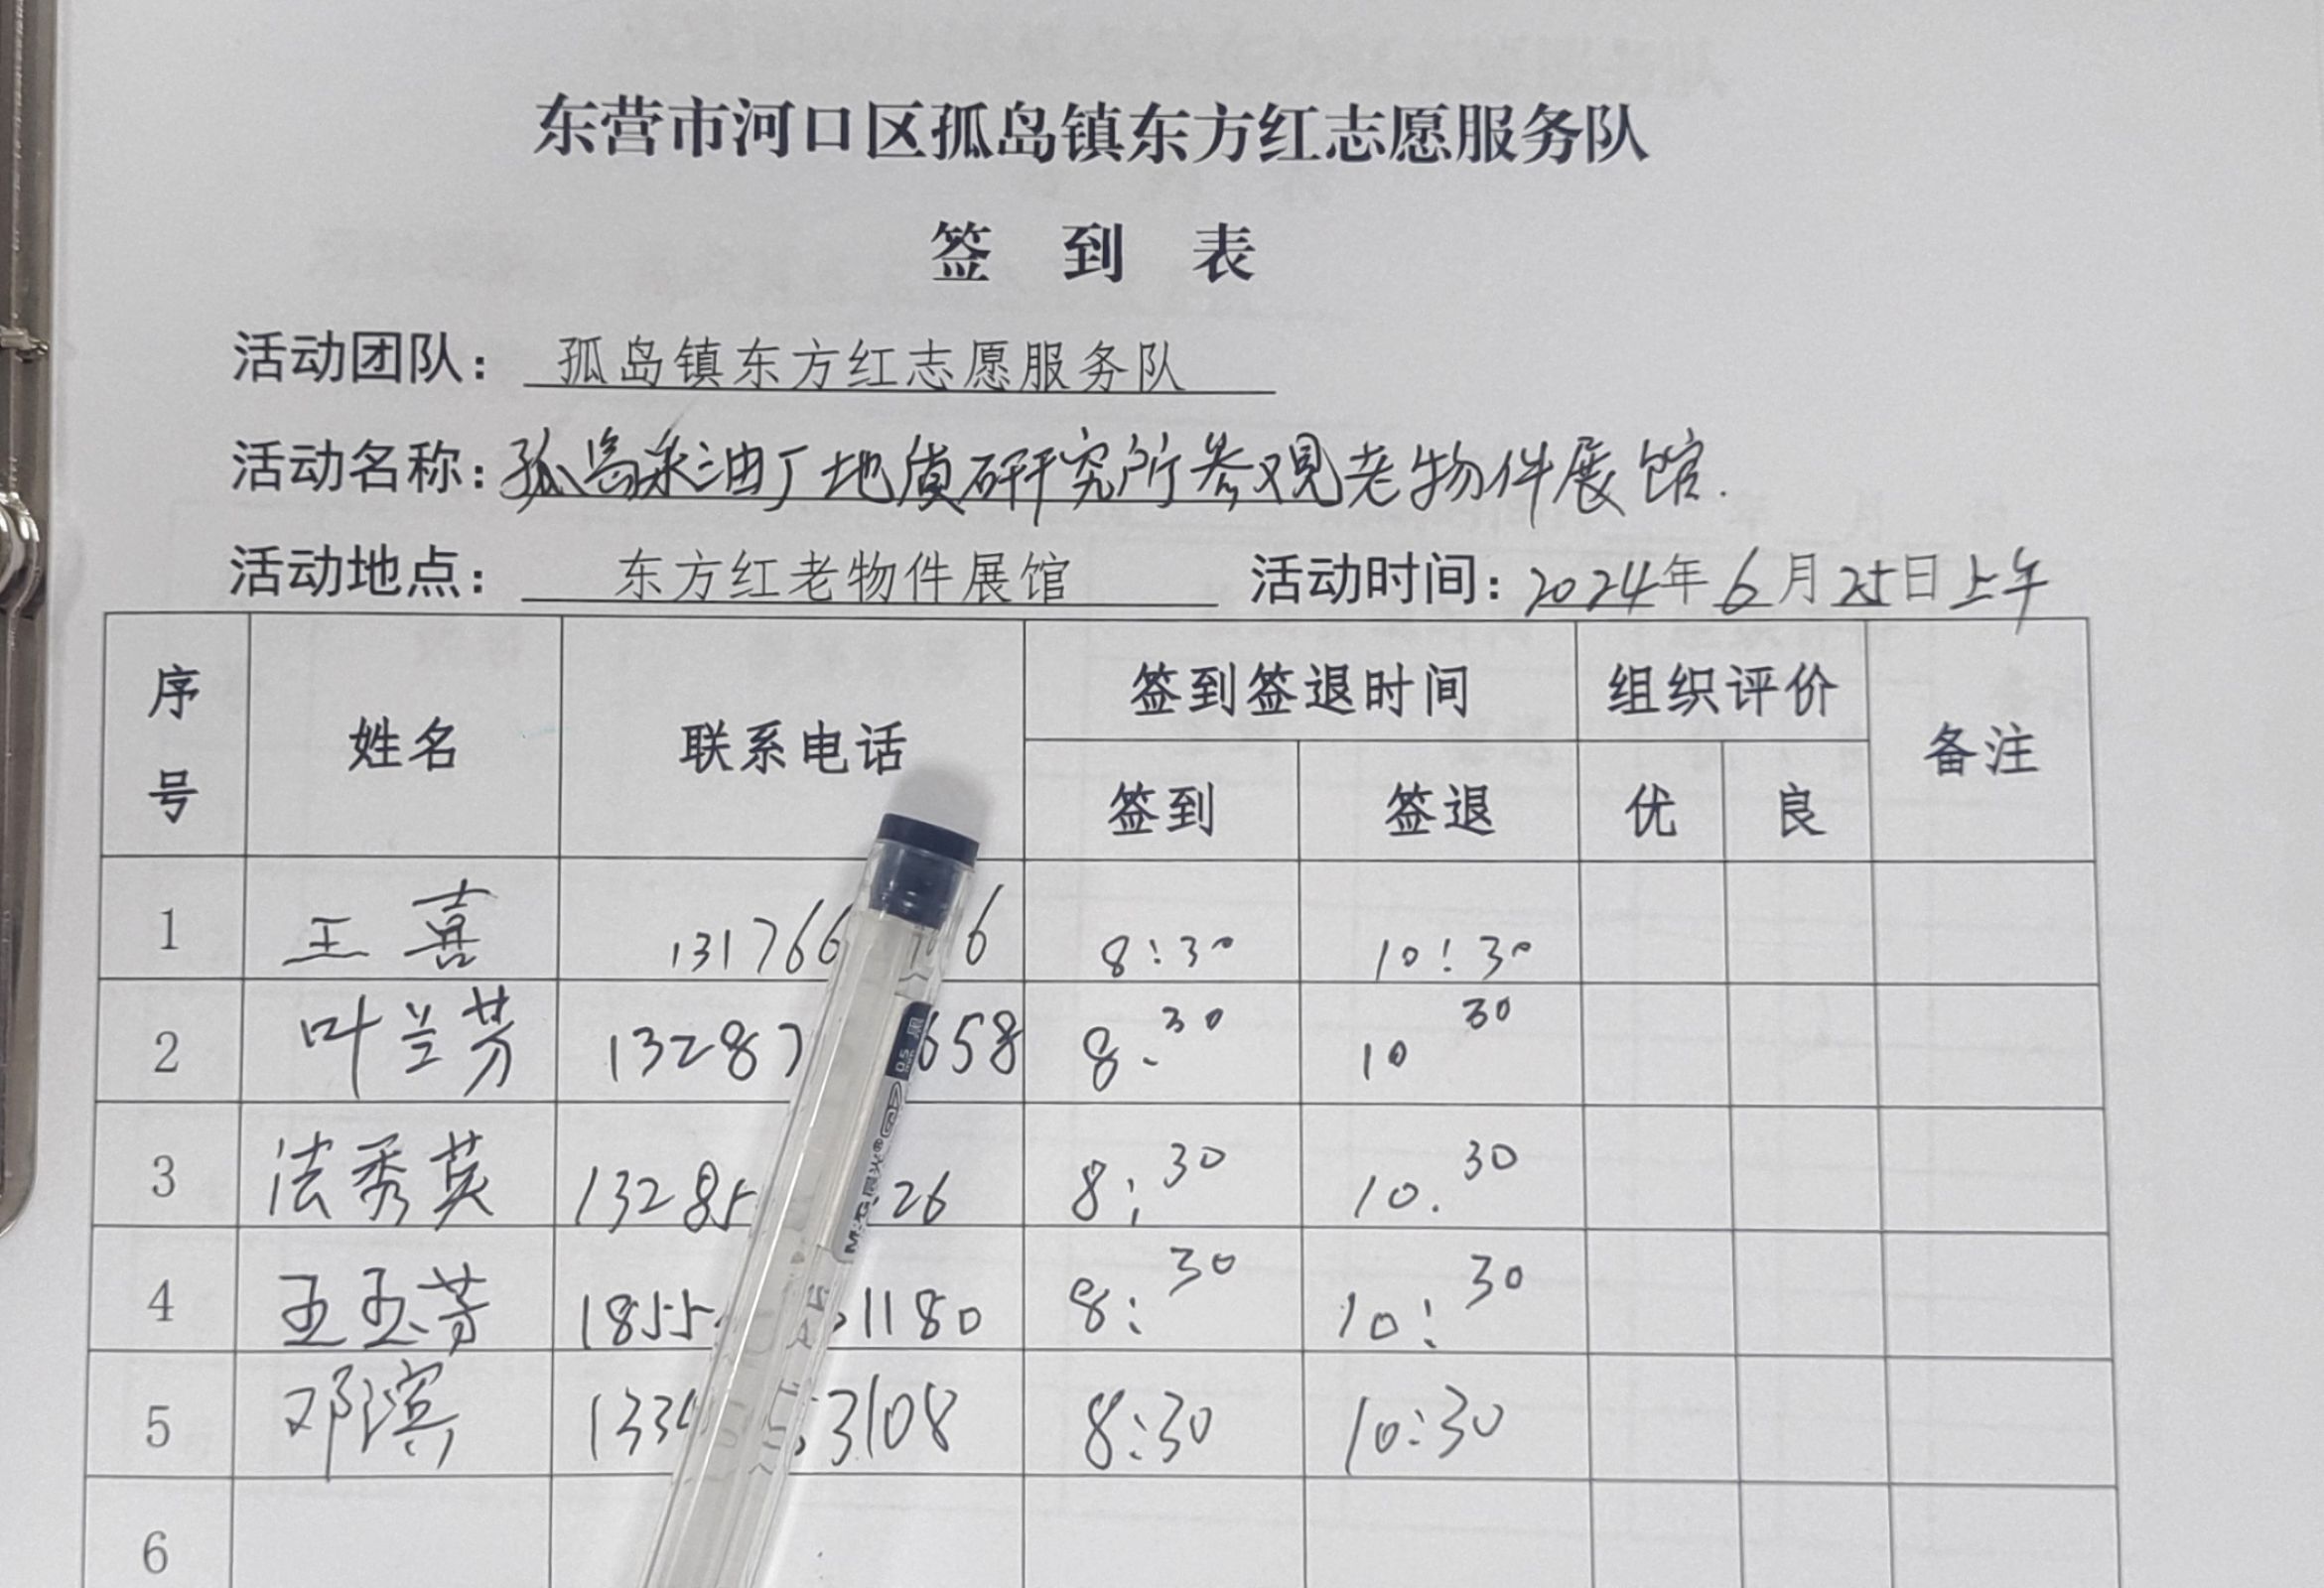 东营市河口区孤岛镇东方红志愿服务队
签 到 表
活动团队：孤岛镇东方红志愿服务队
活动名称：孤岛采油厂地质研究所参观老物件展馆.
活动地点：东方红老物件展馆 活动时间：2024年6月25日上午
序号 姓名 联系电话 签到签退时间 组织评价 备注
签到 签退 优 良
1 王喜 131766 6 8:30 10:30
2 叶兰芳 13287 658 8.30 10 30
3 法秀英 13285 26 8:30 10.30
4 王玉芳 1855 1180 8:30 10:30
5 邓滨 133 3108 8:30 10:30
6
M&G 晨光® 0.5 黑